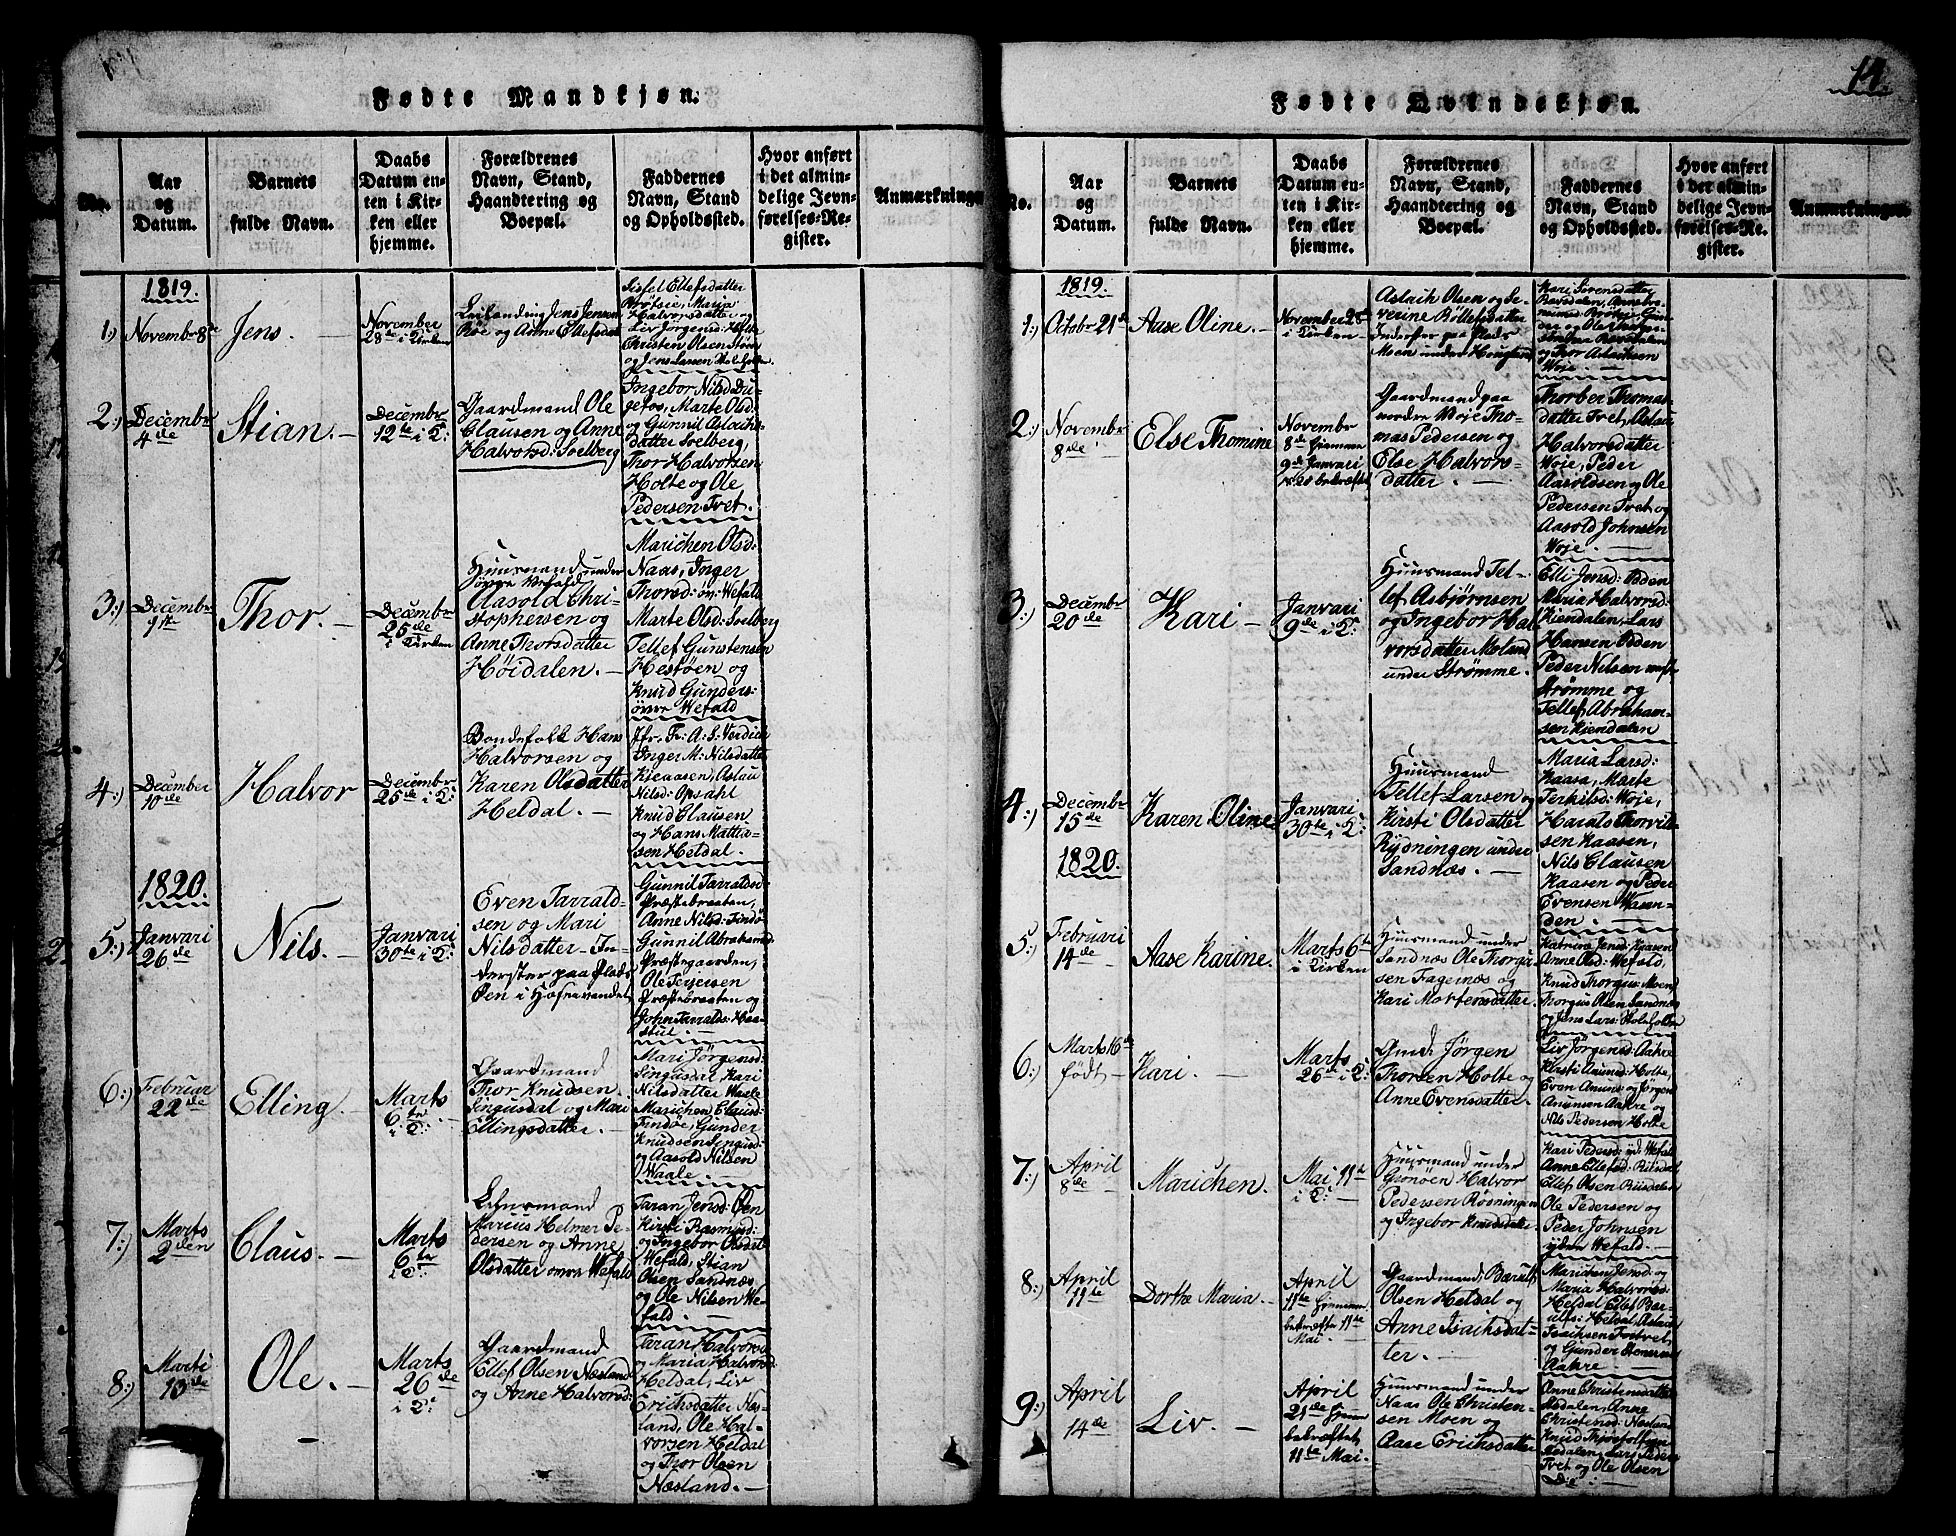 Fødte Mandkjøn.
No.
Aar
og
Datum.
Barnets
fulde Navn.
Daabs
Datum en-
ten i Kir-
ken eller
hjemme.
Forældrenes
Navn, Stand,
Haandtering og
Boepæl.
Faddernes
Navn, Stand
og Opholdssted.
Hvor anført
i det almin-
delige Jevn-
førelses-Re-
gister.
Anmærkninger
1819.
1:)
Novembr 8de
Jens.
November
28de i Kirken
Leilending Jens Jensen
Røe og Anne Ellefsdat
Sissel Ellefsdatter
Brøtsie, Maria
Halvorsdatter og
Liv Jørgensd: Holte
Christen Olsen Støen
og Jens Larsen Holefolden
2:)
Decembr
4de
Stian. —
Decembr
12te i K:
Gaardmand Ole
Clausen og Anne
Halvorsd: Soelberg
Ingebor Nilsd Du-
gefos, Marte Olsd:
og Gunnil Aslachs-
datter Soelberg,
Thor Halvorsen
Holte og Ole
Pedersen Tvet.
3:)
Decembr
9de
Thor. —
Decembr
25de
i Kirken
Huusmand under
øvre Wefald
Aasold Chri-
stophersen og
Anne Thorsdatter
Høidalen. —
Marichen Olsd:
Naas, Inger
Thorsd: øv: Wefald
Marte Olsd: Soelberg
Tellef Gunstensen
Hestøen og
Knud Gunders:
øvre Wefald
4:)
December
10de
Halvor
Decembr
25de i K:
Bondefolk Hans
Halvorsen og
Karen Olsdatter
Heldal. —
Jfr. Fr: A: S: Verdich
Inger M: Nilsdatter
Kieaasen, Aslau
Nilsd: Opsahl
Knud Clausen
og Hans Mattia-
sen Heldal. —
1820.
5:)
Januari
26de
Nils. —
Januari
30te i K:
Even Tarrald-
sen og Mari
Nilsdatter In-
derster paa Plads
Øen i Hosevandet
Gunnil Tarraldsd:
Præstebraaten,
Anne Nilsd: Findø
Gunnil Abrahamsd
Præstegaarden,
Ole Terjeisen
Præstebraaten og
John Tarralds: Haa-
stul. —
6:)
Februar
22de
Elling. —
Marts
6te
i K:
Gaardmand
Thor Knudsen
Lingusdal og Mari
Ellingsdatter. —
Mari Jørgensd:
Lingusdal Kari
Nilsdatter Waale
Marichen Clausd:
Findøe, Gunder
Knudsen Lingusd:
og Aasold Nilsen
Waale. —
7:)
Marts
2den
Claus. —
Marts
6te
i K:
Lehnsmand
Marius Helmer Pe-
dersen og Anne
Olsdatter øvre Wefald
Taran Jensd: Øen
Kirsti Rasmusd:
og Ingebor Olsdat
Wefald, Stian
Olsen Sandnæs
og Ole Nilsen We-
fald. —
8:)
Marti
13de
Ole. —
Marts
26de
i K:
Gaardmand
Ellef Olsen Næsland
og Anne Halvorsd:
Taran Halvorsd
og Maria Halvorsd:
Heldal, Liv
Erichsdatter Næs-
land, Ole Hal-
vorsen Heldal
og Thor Olsen
Næsland. —
14.
Fødte Qvindekjøn.
No.
Aar
og
Datum.
Barnets
fulde Navn.
Daabs
Datum en-
ten i Kir-
ken eller
hjemme.
Forældrenes
Navn, Stand,
Haandtering og
Boepæl.
Faddernes
Navn, Stand
og Opholdssted.
Hvor anført
i det almin-
delige Jevn-
førelses-Re-
gister.
Anmærkninger.
1819.
1:)
Octobr 21de
Aase Oline. —
November 28de
i Kirken
Aslach Olsen og Se-
verine Rollefsdatter
Inderster paa Plads
Moen under Hougland
Kari Sørensdatter
Revsdalen,
og Thor Aslachsen
Woje. —
2:)
Novembr
8de
Else Thomine
Novembr
8de hjemme
9de Januari
1820 bekræftet
Gaardmand paa
nordre Woje Tho-
mas Pedersen og
Else Halvors-
datter. —
Thorber Thomas-
datter Tvet, Aslau
Halvorsdatter
Woje, Peder
Aasoldsen og Ole
Pedersen Tvet og
Aasold Johnsen
Woje. —
3:)
Decembr
20de
Kari —
Januari
9de i K:
Huusmand Tel-
lef Asbjørnsen
og Ingebor Hal-
vorsdatter Moland
under Strømme.
Elli Jensd: Øeden
Maria Halvorsd:
Kiendalen, Lars
Hansen Øeden
Peder Nilsen
Strømme og
Tellef Abraham-
sen Kiendalen
4:)
Decembr
15de
Karen Oline
Januari
30te i K:
Huusmand
Tellef Larsen og
Kirsti Olsdatter
Rydningen under
Sandnæs. —
Maria Larsd:
Kaasa, Marte
Terkilsd: Woje,
Harals Thorvil-
sen Kaasen,
Nils Clausen
Kaasen og Peder
Evensen Waan-
den. —
1820.
5:)
Februari
14de
Aase Karine.
Marts 6te
i Kirken
Huusmand under
Sandnæs Ole Thorgu-
sen Fagernæs og
Kari Mortensdatter.
Katrine Jensd: Kaasen
Anne Olsd: Wefald,
Knud Thorgus: Moen
Thorgus Olsen Sandnæs
og Jens Lars: Holefolden
6:)
Marts 16de
født
Kari. —
Marts
26de i K:
Gmd: Jørgen
Thorsen Holte og
Anne Evensdatter.
Liv Jørgensd: Aakre
Kirsti Aanund: Holte,
Even Anuns: og Jørgen
Anunsen Aakre og
Nils Pedersen Holte
7:)
April
8de
Marichen.
Mai 11te
i K:
Huusmand under
Grønøen Halvor
Pedersen Rødningen
og Ingebor Knudsdatter
Kari Pedersd: yd: Wefald
Anne Ellefsd: Riisdal
Ellef Olsen Riisdalen
Ole Pedersen og
Peder Johnsen
ydre Wefald. —
8:)
April
11te
Dorthe Maria. —
April
11te hjemme
bekræftet 11te
Mai. —
Gaardmand Børuls
Olsen Heldal og
Anne Isachsdat-
ter. —
Marichen Jensd: og
Maria Halvorsd
Heldal Ellef Bør-
ulfs: Heldal, Aslach
Isachsen Tostvet,
og Gunder Stenersen
Aakre. —
9:)
April
14de
Liv. —
April
21de hjem
bekræftet
11te Mai.
Huusmand under
Naas Ole Christen-
sen Moen og
Aase Erichsdatter
Anne Christensdatter
Anne
Christensd: Næsland
Knud
Lars Peders:
Tvet og Ole Olsen
Do: —